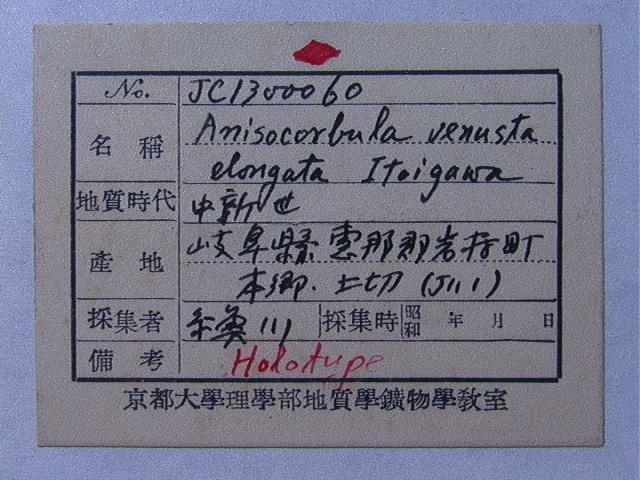 No. JC1300060
名稱 Anisocorbula venusta
elongata Itoigawa
地質時代 中新世
產地 岐阜縣恵那郡岩村町
本郷. 上切 (J111)
採集者 糸魚川 採集時 昭和 年 月 日
備考 Holotype
京都大學理學部地質學鑛物學教室